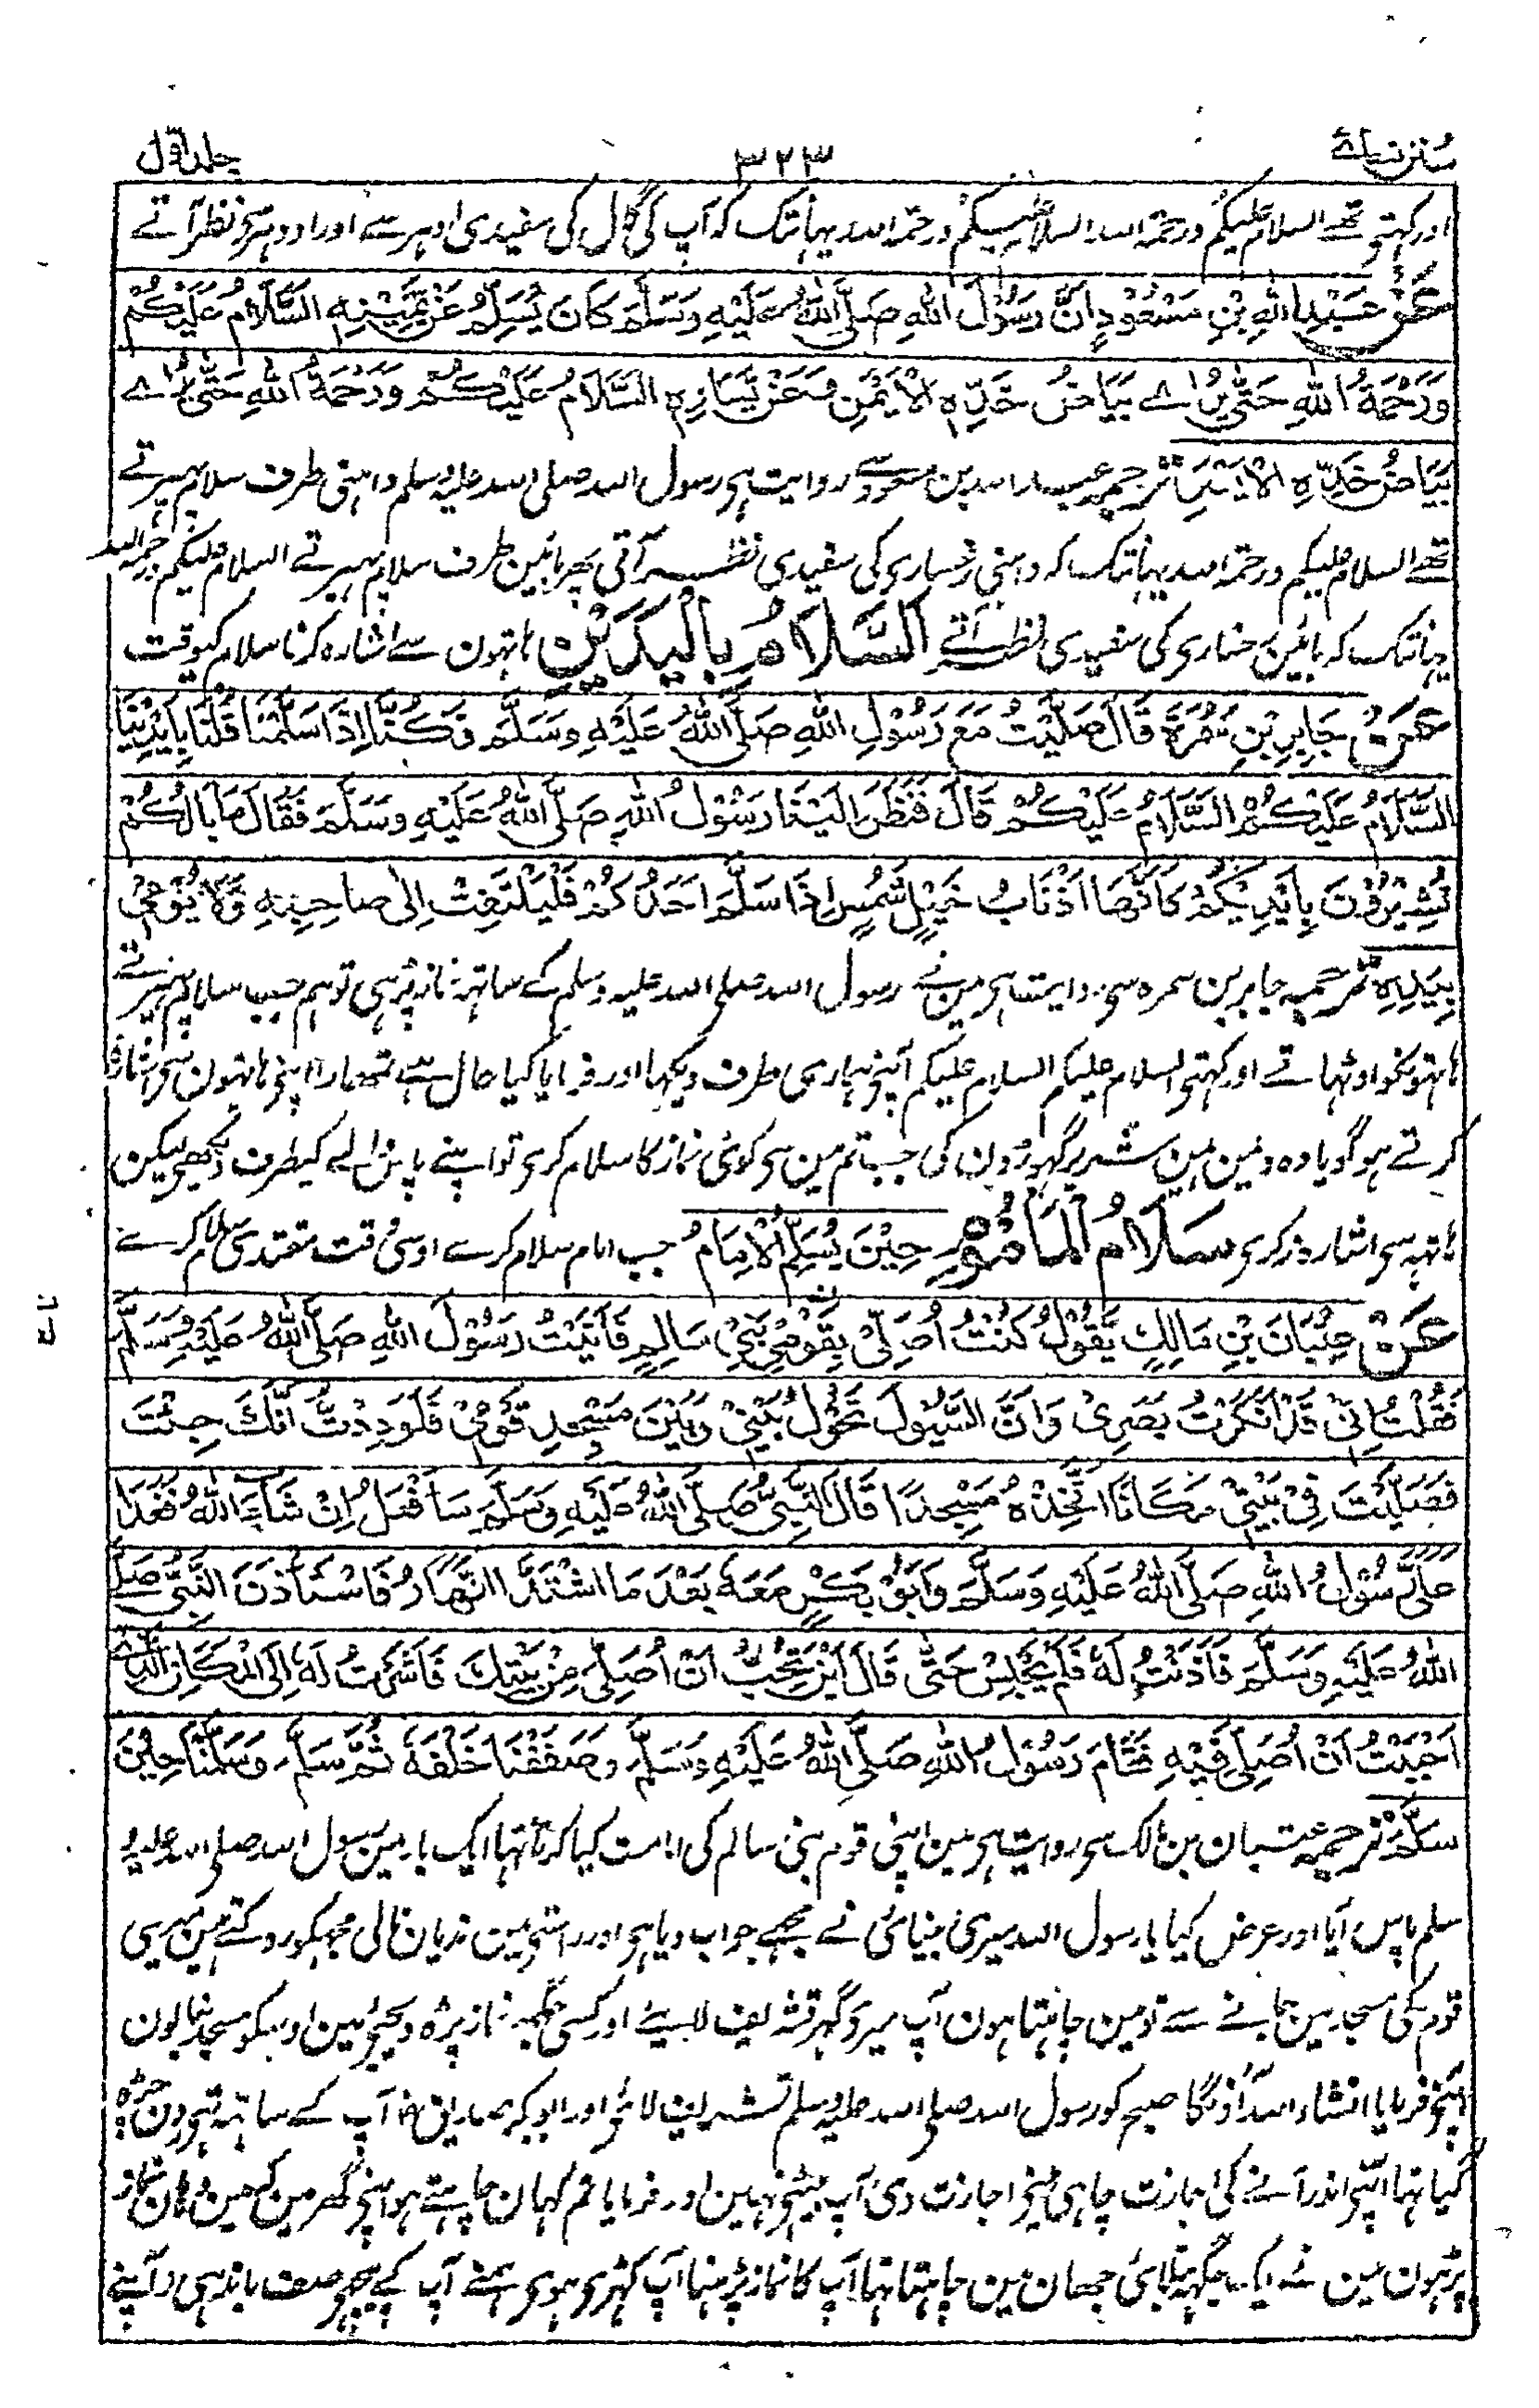 سنن نسائے ۳۲۳ جلد اوّل
اور کہتے تھے السلام علیکم ورحمۃ اللہ السلام علیکم ورحمۃ اللہ یہانتک کہ آپ کی گال کی سفیدی ادہر سے اور اودہر سے نظر آتے
عَنْ عَبْدِ اللّٰهِ بْنِ مَسْعُوْدٍ اَنَّ رَسُوْلَ اللّٰهِ صَلَّى اللّٰهُ عَلَيْهِ وَسَلَّمَ كَانَ يُسَلِّمُ عَنْ يَّمِيْنِهِ السَّلَامُ عَلَيْكُمْ
وَرَحْمَةُ اللّٰهِ حَتّٰى يُرٰے بَيَاضُ خَدِّهِ الْاَيْمَنِ وَعَنْ يَّسَارِهِ السَّلَامُ عَلَيْكُمْ وَرَحْمَةُ اللّٰهِ حَتّٰى يُرٰے
بَيَاضُ خَدِّهِ الْاَيْسَرِ ترجمہ عبد اللہ بن مسعود سے روایت ہی رسول اللہ صلی اللہ علیہ وسلم داہنی طرف سلام پہیرتے
تھے السلام علیکم ورحمۃ اللہ یہانتک کہ داہنی رخساری کی سفیدی نظر آتی پھر بائین طرف سلام پہیرتے السلام علیکم ورحمۃ اللہ
یہانتک کہ بائین رخساری کی سفیدی نظر آتے اَلسَّلَامُ بِالْيَدَيْنِ ہاتہون سے اشارہ کرنا سلام کیوقت
عَنْ جَابِرِ بْنِ سَمُرَةَ قَالَ صَلَّيْتُ مَعَ رَسُوْلِ اللّٰهِ صَلَّى اللّٰهُ عَلَيْهِ وَسَلَّمَ فَكُنَّا اِذَا سَلَّمْنَا قُلْنَا بِاَيْدِيْنَا
السَّلَامُ عَلَيْكُمْ السَّلَامُ عَلَيْكُمْ قَالَ فَنَظَرَ اِلَيْنَا رَسُوْلُ اللّٰهِ صَلَّى اللّٰهُ عَلَيْهِ وَسَلَّمَ فَقَالَ مَا بَالُكُمْ
تُشِيْرُوْنَ بِاَيْدِيْكُمْ كَاَنَّهَا اَذْنَابُ خَيْلٍ شُمُسٍ اِذَا سَلَّمَ اَحَدُكُمْ فَلْيَلْتَفِتْ اِلٰى صَاحِبِهِ وَلَا يُوْمِىْ
بِيَدِهِ ترجمہ جابر بن سمرہ سی روایت ہی مین نے رسول اللہ صلی اللہ علیہ وسلم کے ساتہ نماز پڑہی تو ہم جب سلام پہیرتے
ہاتہونکو اوٹہاتے اور کہتی السلام علیکم السلام علیکم آپنی ہماری طرف دیکہا اور فرمایا کیا حال ہے تمھارا اپنی ہاتہون سی اشارہ
کرتے ہو گویا وہ دمین ہین شریر گہوڑون کی جب تم مین سی کوئی نماز کا سلام کری تو اپنے پاس والے کیطرف دیکھی لیکن
ہاتہ سی اشارہ نہ کری سَلَامُ الْمَامُوْمِ حِيْنَ يُسَلِّمُ الْاِمَامُ جب امام سلام کرے اوسی وقت مقتدی سلام کرے
عَنْ عِتْبَانَ بْنِ مَالِكٍ يَقُوْلُ كُنْتُ اُصَلِّىْ بِقَوْمِىْ بَنِىْ سَالِمٍ فَاَتَيْتُ رَسُوْلَ اللّٰهِ صَلَّى اللّٰهُ عَلَيْهِ وَسَلَّمَ
فَقُلْتُ اِنِّىْ قَدْ اَنْكَرْتُ بَصَرِىْ وَاَنَّ السُّيُوْلَ تَحُوْلُ بَيْنِىْ وَبَيْنَ مَسْجِدِ قَوْمِىْ فَلَوَدِدْتُّ اَنَّكَ جِئْتَ
فَصَلَّيْتَ فِىْ بَيْتِىْ مَكَانًا اَتَّخِذُهُ مَسْجِدًا قَالَ النَّبِىُّ صَلَّى اللّٰهُ عَلَيْهِ وَسَلَّمَ سَاَفْعَلُ اِنْ شَاءَ اللّٰهُ فَغَدَا
عَلَىَّ رَسُوْلُ اللّٰهِ صَلَّى اللّٰهُ عَلَيْهِ وَسَلَّمَ وَاَبُوْ بَكْرٍ مَعَهُ بَعْدَ مَا اشْتَدَّ النَّهَارُ فَاسْتَاْذَنَ النَّبِىُّ صَلَّى
اللّٰهُ عَلَيْهِ وَسَلَّمَ فَاَذِنْتُ لَهُ فَلَمْ يَجْلِسْ حَتّٰى قَالَ اَيْنَ تُحِبُّ اَنْ اُصَلِّىَ مِنْ بَيْتِكَ فَاَشَرْتُ لَهُ اِلَى الْمَكَانِ الَّذِىْ
اَحْبَبْتُ اَنْ اُصَلِّىَ فِيْهِ فَقَامَ رَسُوْلُ اللّٰهِ صَلَّى اللّٰهُ عَلَيْهِ وَسَلَّمَ وَصَفَفْنَا خَلْفَهُ ثُمَّ سَلَّمَ وَسَلَّمْنَا حِيْنَ
سَلَّمَ ترجمہ عتبان بن مالک سی روایت ہی مین اپنی قوم بنی سالم کی امامت کیا کرتا تہا ایک بار مین رسول اللہ صلی اللہ علیہ و
سلم پاس آیا اور عرض کیا یا رسول اللہ میری بینائی نے مجھے جواب دیا ہی اور راستی مین ندیان نالی مجہکو روکتے ہین میری
قوم کی مسجد مین جانے سے تو مین چاہتا ہون آپ میری گہر تشریف لایئے اور کسی جگہہ نماز پڑہ دیجئی مین اوسکو مسجد بنالون
آپنی فرمایا انشاء اللہ آؤنگا صبح کو رسول اللہ صلی اللہ علیہ وسلم تشریف لائی اور ابو بکر صدیق آپ کے ساتہ تہی دن چڑہ
گیا تہا آپنی اندر آنے کی اجازت چاہی مینی اجازت دی آپ بیٹہی نہین اور فرمایا تم کہان چاہتے ہو اپنی گھر مین کہ مین وہان نماز
پڑہون مین نے ایک جگہہ بتلائی جہان مین چاہتا تہا آپ کا نماز پڑہنا آپ کہڑی ہوی ہمنے آپ کے پیچہی صف باندہی و آپنے